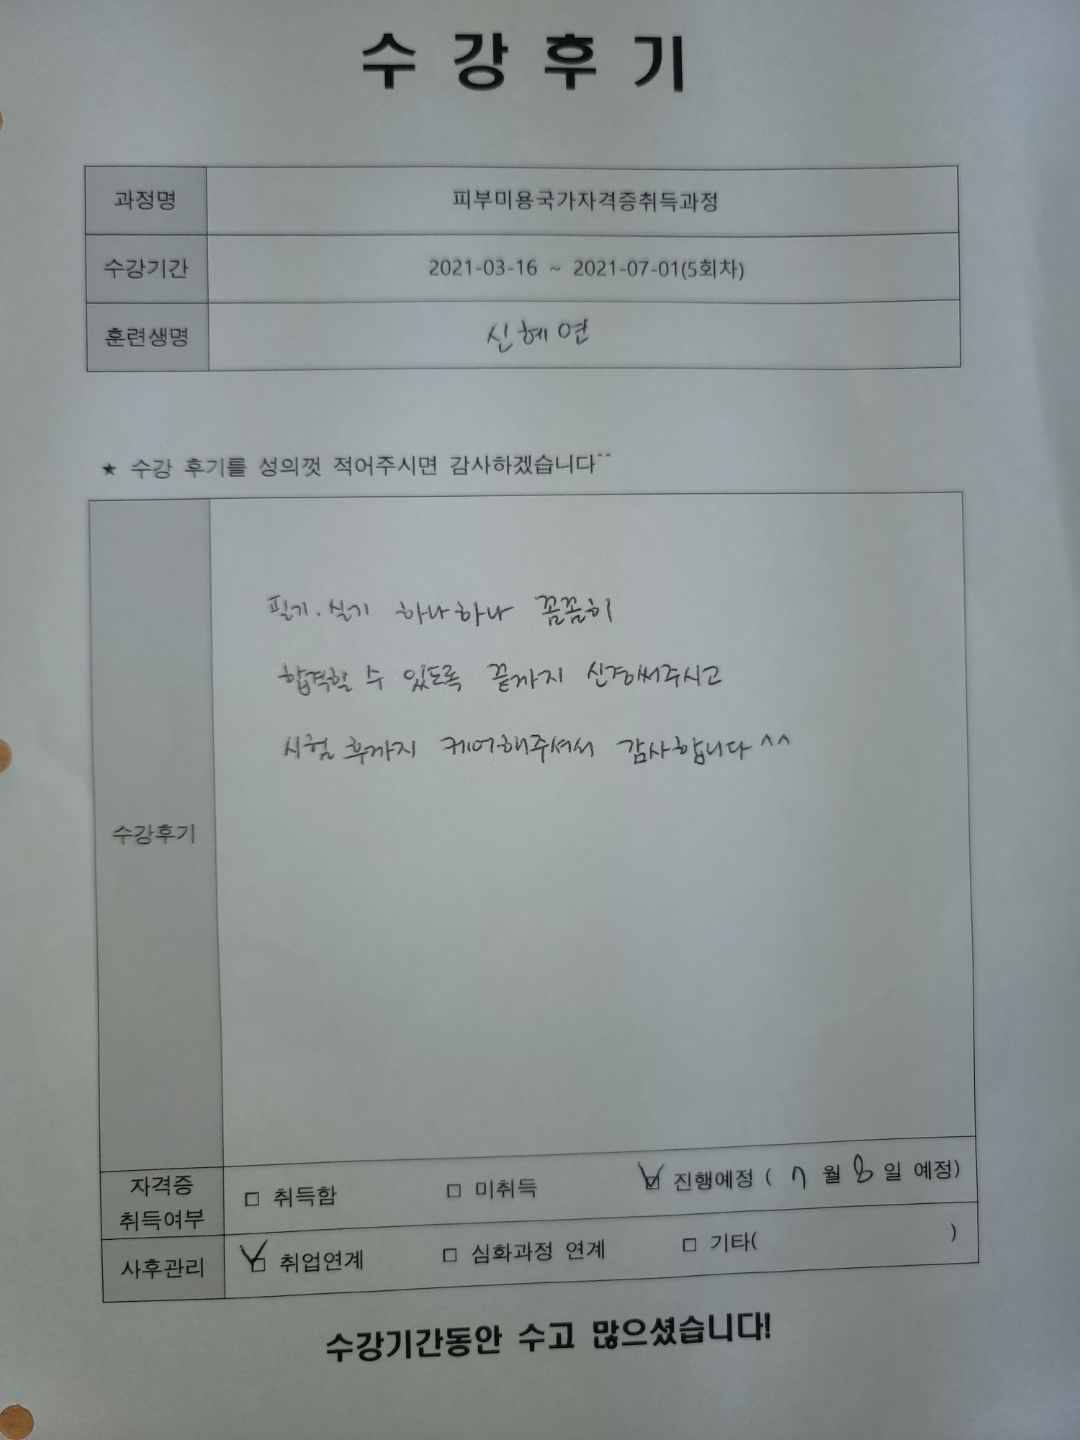 수 강 후 기
과정명 피부미용국가자격증취득과정
수강기간 2021-03-16 ~ 2021-07-01(5회차)
훈련생명 신혜연
★ 수강 후기를 성의껏 적어주시면 감사하겠습니다^^
필기.실기 하나하나 꼼꼼히
합격할 수 있도록 끝까지 신경써주시고
시험 후까지 케어해주셔서 감사합니다^^
수강후기
자격증
취득여부
□ 취득함 □ 미취득 ☑ 진행예정 ( 7 월 8 일 예정)
사후관리 ☑ 취업연계 □ 심화과정 연계 □ 기타( )
수강기간동안 수고 많으셨습니다!